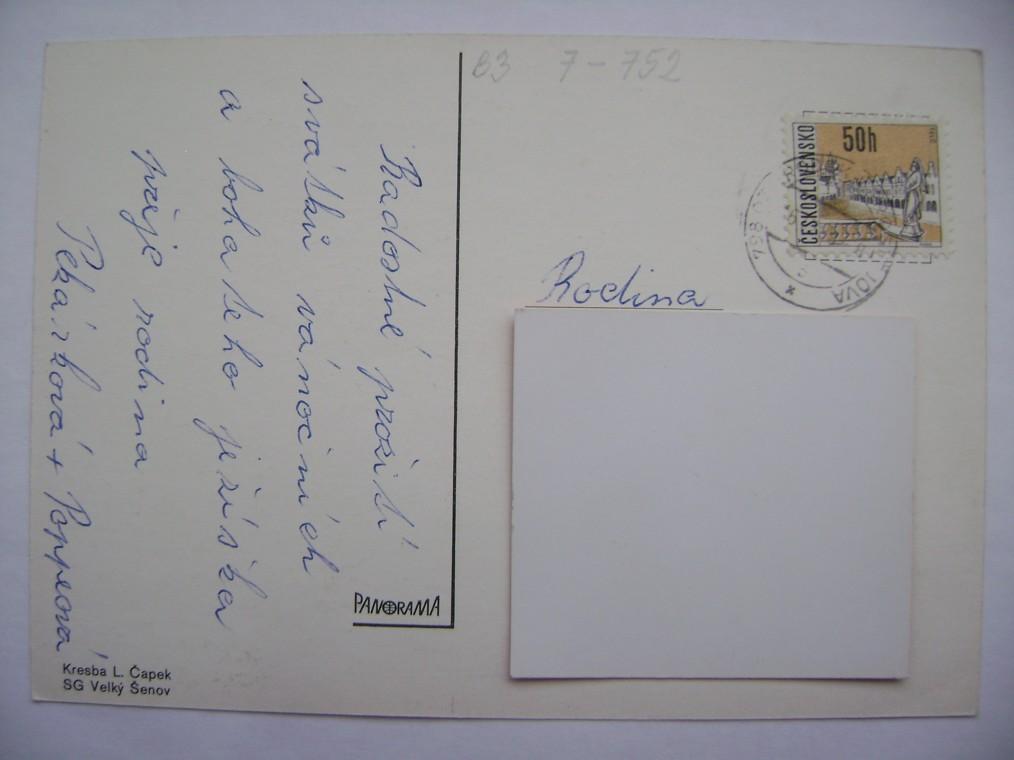 Radostné prožití
svátků vánočních
a bohatého ježíška
přeje rodina
Pekárková + Poppeová
PANORAMA
Kresba L. Čapek
SG Velký Šenov
83 7-752
ČESKOSLOVENSKO
50h
Rodina